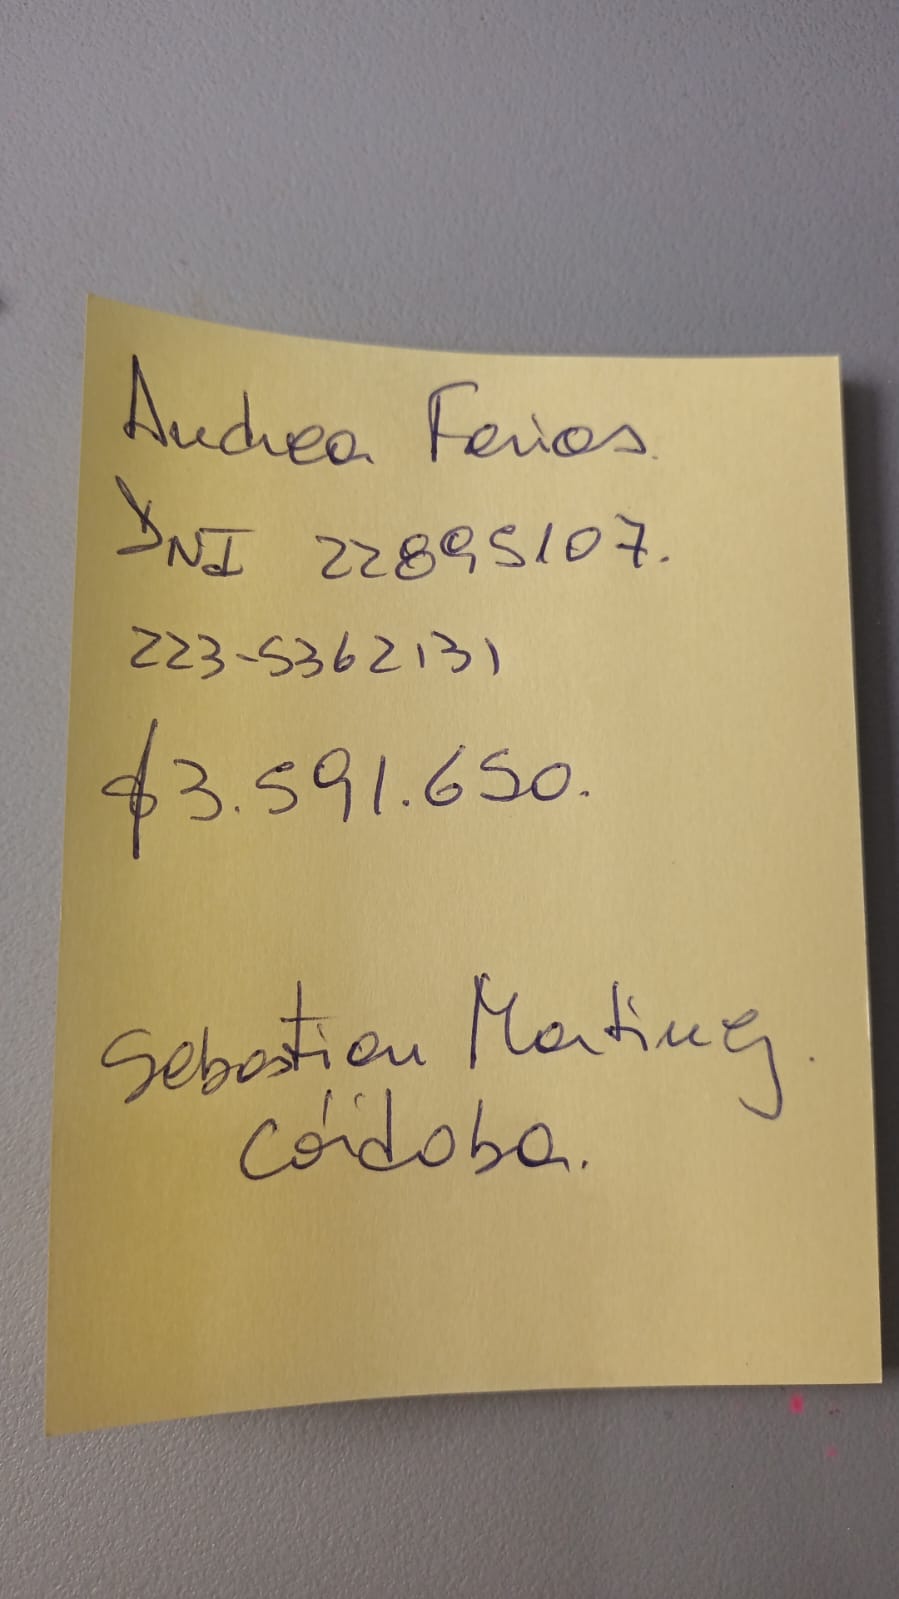 Andrea Farias.
DNI 22895107.
223-5362131
$3.591.650.
Sebastian Martinez.
Córdoba.